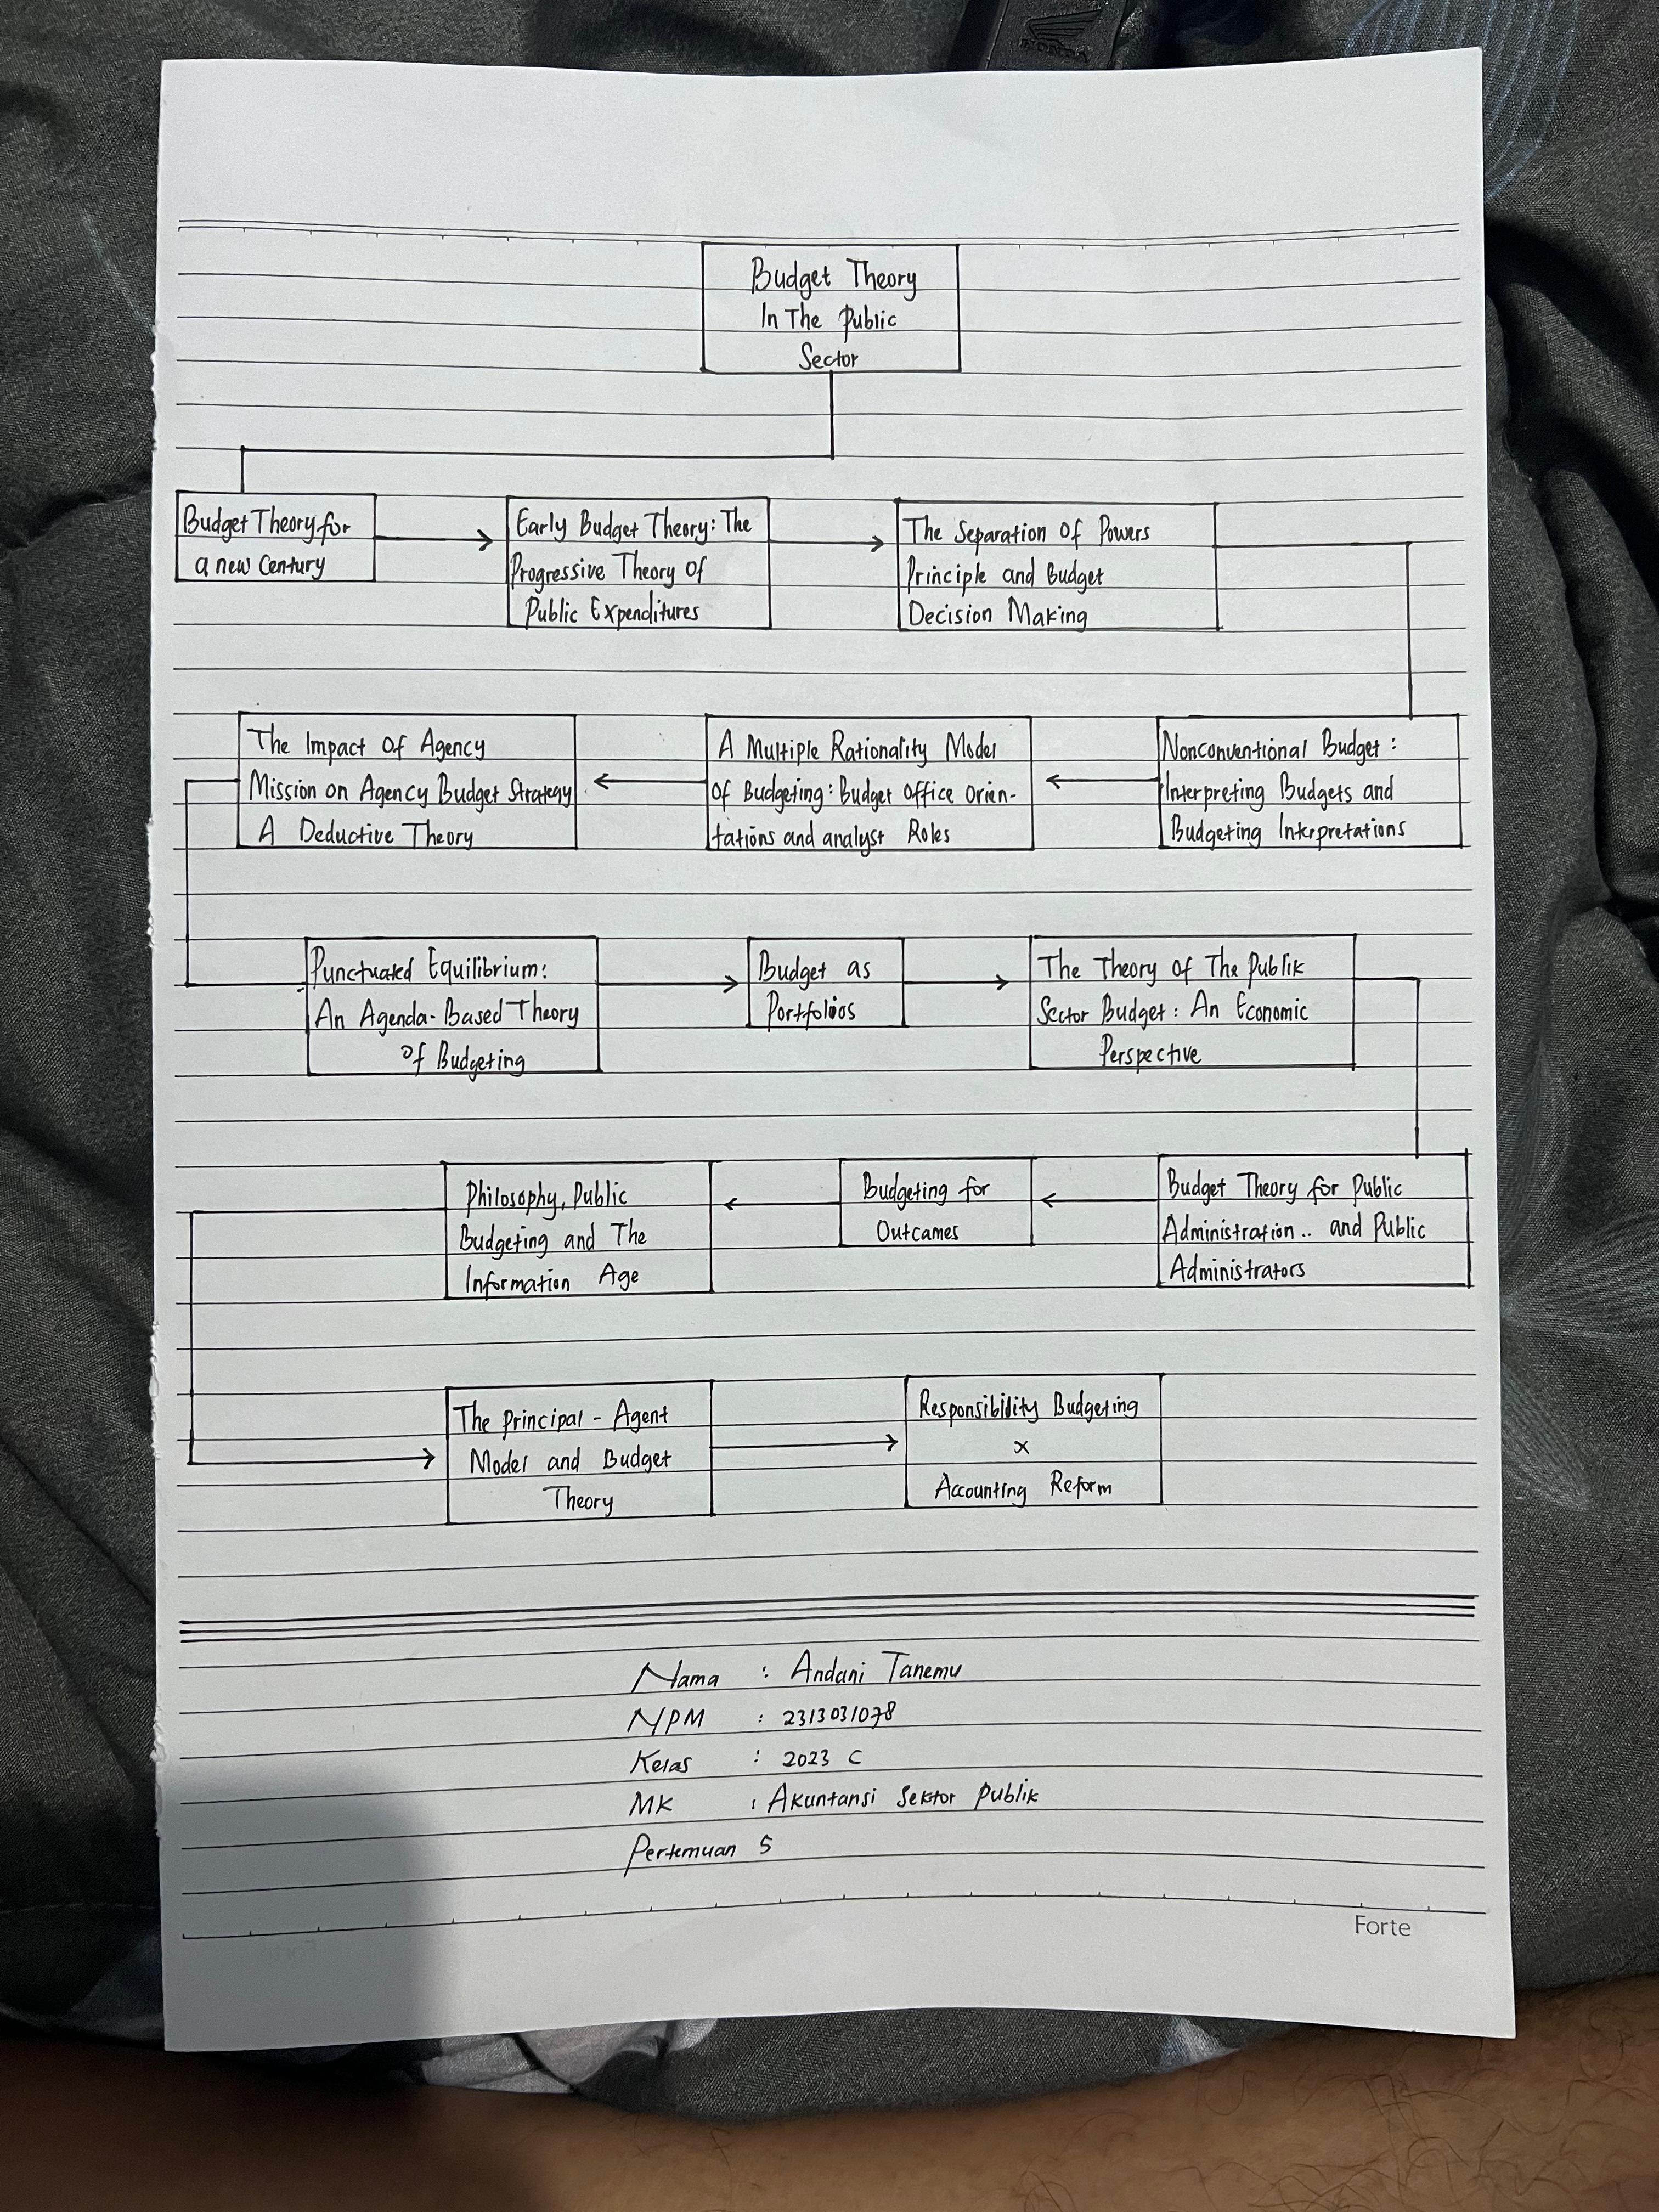 HONDA
Budget Theory
In The Public
Sector
Budget Theory for
a new Century
Early Budget Theory: The
Progressive Theory Of
Public Expenditures
The Separation Of Powers
Principle and Budget
Decision Making
Nonconventional Budget :
Interpreting Budgets and
Budgeting Interpretations
A Multiple Rationality Model
Of Budgeting: Budget Office Orien-
tations and analyst Roles
The Impact Of Agency
Mission on Agency Budget Strategy
A Deductive Theory
Punctuated Equilibrium:
An Agenda-Based Theory
Of Budgeting
Budget as
Portfolios
The Theory of The Publik
Sector Budget: An Economic
Perspective
Budget Theory for Public
Administration.. and Public
Administrators
Budgeting for
Outcames
Philosophy, Public
Budgeting and The
Information Age
The Principal - Agent
Model and Budget
Theory
Responsibility Budgeting
x
Accounting Reform
Nama : Andani Tanemu
NPM : 2313031078
Kelas : 2023 C
MK : Akuntansi Sektor Publik
Pertemuan 5
Forte